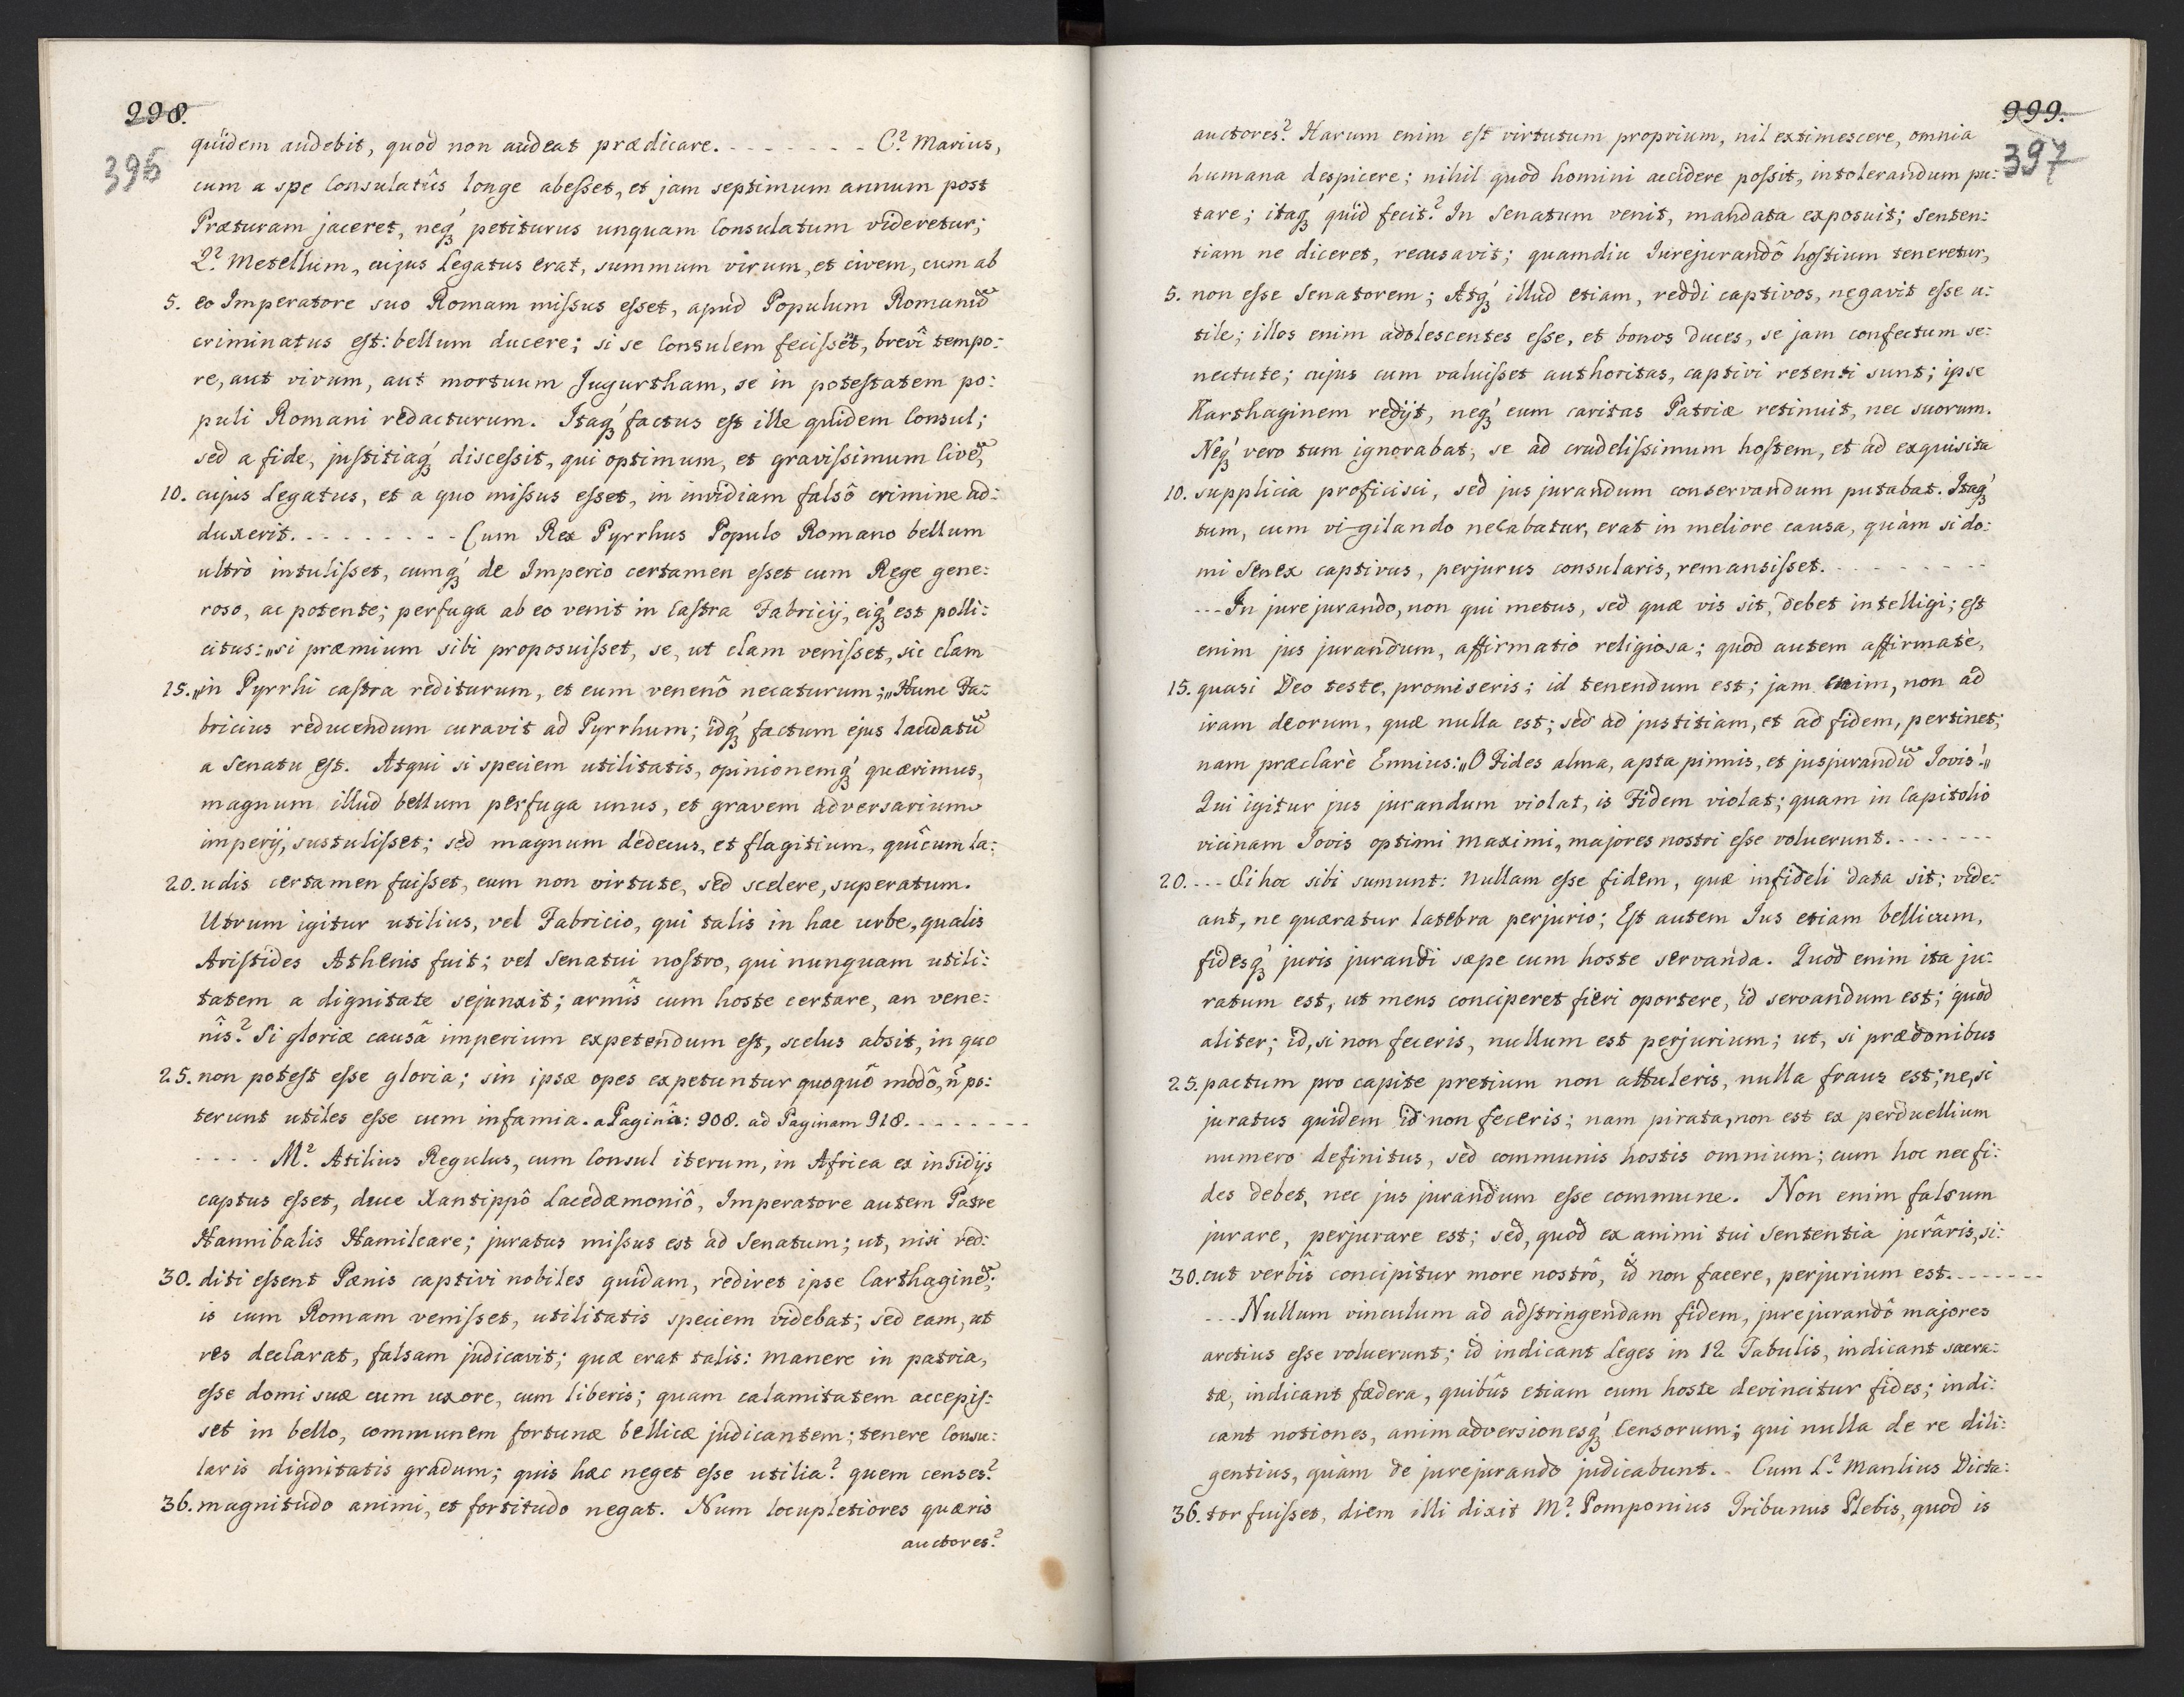 998.
396
quidem audebit, quod non audeat prædicare. - - - - - - - C? Marius,
cum a spe Consulatûs longe abesset, et jam septimum annum post
Præturam jaceret, neq́ꝫ petiturus unquam Consulatum videretur;
Q? Metellum, cujus Legatus erat, summum virum, et civem, cum ab
5. eo Imperatore suo Romam missus esset, apud Populum Romanū
criminatus est: bellum ducere; si se Consulem fecissēt, brevî tempo:
re, aut vivum, aut mortuum Jugurtham, se in potestatem po:
puli Romani redacturum. Itaq́ꝫ factus est ille quidem Consul;
sed a fide, justitiaq́ꝫ discessit, qui optimum, et gravissimum Civē,
10. cujus Legatus, et a quo missus esset, in invidiam falsô crimine ad:
duxerit. - - - - - - - - - Cum Rex Pyrrhus Populo Romano bellum
ultrò intulisset, cumq́ꝫ de Imperio certamen esset cum Rege gene:
roso, ac potente; perfuga ab eo venit in Castra Fabricij, eiq́ꝫ est polli:
citus: „si præmium sibi proposuisset, se, ut clam venisset, sic clam
15. „in Pyrrhi castra rediturum, et eum venenô necaturum; „Hunc Fa:
bricius reducendum curavit ad Pyrrhum; idq́ꝫ factum ejus laudatū
a Senatu est. Atqui si speciem utilitatis, opinionemq́ꝫ quærimus,
magnum illud bellum perfuga unus, et gravem adversarium
imperij, sustulisset; sed magnum dedecus, et flagitium, quîcum la:
20. udis certamen fuisset, eum non virtute, sed scelere, superatum.
Utrum igitur utilius, vel Fabricio, qui talis in hac urbe, qualis
Aristides Athenis fuit; vel Senatui nostro, qui nunquam utili:
tatem a dignitate sejunxit; armîs cum hoste certare, an vene:
nîs? Si gloriæ causâ imperium expetendum est, scelus absit, in quo
25. non potest esse gloria; sin ipsæ opes expetuntur quoquô modô, n̄ po:
terunt utiles esse cum infamia. a Paginâ: 908. ad Paginam 918. - - - - - - -
- - - - M? Atilius Regulus, cum Consul iterum, in Africa ex insidijs
captus esset, duce Xantippô Lacedæmoniô, Imperatore autem Patre
Hannibalis Hamilcare; juratus missus est ad Senatum; ut, nisi red:
30. diti essent Pænis captivi nobiles quidam, rediret ipse Carthaginē;
is cum Romam venisset, utilitatis speciem videbat; sed eam, ut
res declarat, falsam judicavit; quæ erat talis: manere in patria,
esse domi suæ cum uxore, cum liberis; quam calamitatem accepis:
set in bello, communem fortunæ bellicæ judicantem; tenere Consu:
laris dignitatis gradum; quis hæc neget esse utilia? quem censes?
36. magnitudo animi, et fortitudo negat. Num locupletiores quæris
auctores?
999.
397
auctores? Harum enim est virtutum proprium, nil extimescere, omnia
humana despicere; nihil quod homini accidere possit, intolerandum pu:
tare; itaq́ꝫ quid fecit? In Senatum venit, mandata exposuit; Senten:
tiam ne diceret, recusavit; quamdiu Jurejurandô hostium teneretur,
5. non esse Senatorem; Atq́ꝫ illud etiam, reddi captivos, negavit esse u:
tile; illos enim adolescentes esse, et bonos duces, se jam confectum se:
nectute; cujus cum valuisset authoritas, captivi retenti sunt; ipse
Karthaginem redijt, neq́ꝫ eum caritas Patriæ retinuit, nec suorum.
Neq́ꝫ vero tum ignorabat, se ad crudelissimum hostem, et ad exquisita
10. supplicia proficisci, sed jus jurandum conservandum putabat. Itaq́ꝫ
tum, cum vigilando necabatur, erat in meliore causa, quàm si do:
mi Senex captivus, perjurus consularis, remansisset. - - - - - - - -
- - - In jure jurando, non qui metus, sed quæ vis sit, debet intelligi; est
enim jus jurandum, affirmatio religiosa; quod autem affirmatè,
15. quasi Deo teste, promiseris; id tenendum est; jam enim, non ad
iram deorum, quæ nulla est; sed ad justitiam, et ad fidem, pertinet;
nam præclarè Ennius: „O Fides alma, apta pinnis, et jusjurandū Jovis!„
Qui igitur jus jurandum violat, is Fidem violat; quam in Capitolio
vicinam Jovis optimi maximi, majores nostri esse voluerunt. - - - - - - -
20. - - - Si hoc sibi sumunt: nullam esse fidem, quæ infideli data sit; vide:
ant, ne quæratur latebra perjurio; Est autem Jus etiam bellicum,
fidesq́ꝫ juris jurandi sæpe cum hoste servanda. Quod enim ita ju:
ratum est, ut mens conciperet fieri oportere, id servandum est; quod
aliter; id, si non feceris, nullum est perjurium; ut, si prædonibus
25. pactum pro capite pretium non attuleris, nulla fraus est; ne, si
juratus quidem id non feceris; nam pirata, non est ex perduellium
numero definitus, sed communis hostis omnium; cum hoc nec fi:
des debet, nec jus jurandum esse commune. Non enim falsum
jurare, perjurare est; sed, quod ex animi tui sententia jurâris, si:
30. cut verbîs concipitur more nostrô, id non facere, perjurium est. - - - - - - -
- - - Nullum vinculum ad adstringendam fidem, jurejurandô majores
arctius esse voluerunt; id indicant Leges in 12 Tabulis, indicant sacra:
tæ, indicant fœdera, quibûs etiam cum hoste devincitur fides; indi:
cant notiones, animadversionesq́ꝫ Censorum; qui nulla de re dili:
gentius, quàm de jurejurando judicabunt. - Cum L? Manlius Dicta:
36. tor fuisset, diem illi dixit M? Pomponius Tribunus Plebis, quod is